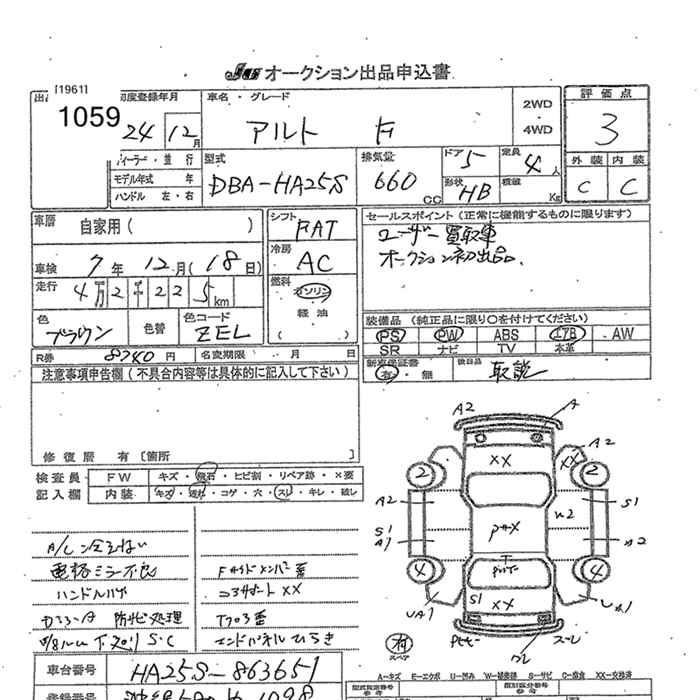 JUS オークション出品申込書
[1961]
1059
初度登録年月
24 12月
車名・グレード
アルト F
2WD
・
4WD
評価点
3
ディーラー・並行
モデル年式 年
ハンドル 左・右
型式
DBA-HA25S
排気量
660 CC
ドア
5
形状
HB
定員
4人
積載
Kg
外装 内装
C C
車歴 自家用 ( )
車検 7年 12月 (18日)
走行 4万2千225km
色 ブラウン 色替
色コード ZEL
シフト
FAT
冷房
AC
燃料
ガソリン
・
軽油
( )
セールスポイント (正常に機能するものに限ります)
ユーザー買取車
オークション初出品.
装備品 (純正品に限り○を付けてください)
PS PW ABS エアB AW
SR ナビ TV 本革
R券 8740円 名変期限 月 日
新車保証書
有・無
後日品
取説
注意事項申告欄 (不具合内容等は具体的に記入して下さい)
修復歴 有 [箇所 ]
検査員
記入欄
FW キズ・飛石・ヒビ割・リペア跡・×要
内装 キズ・汚れ・コゲ・穴・スレ・キレ・破レ
A/C冷えない
電格ミラー不良
ハンドルハゲ
防サビ処理
S・C
コアサポートXX
フロア歪
エンドパネルひらき
A2 A
A2
XX XX
2 2
A2 S1
S1
A1
4 4
S1 XX
有
スペア
車台番号 HA25S-863651
登録番号
A-キズ E-エクボ U-凹み W-補修跡 S-サビ C-腐食 XX-交換済